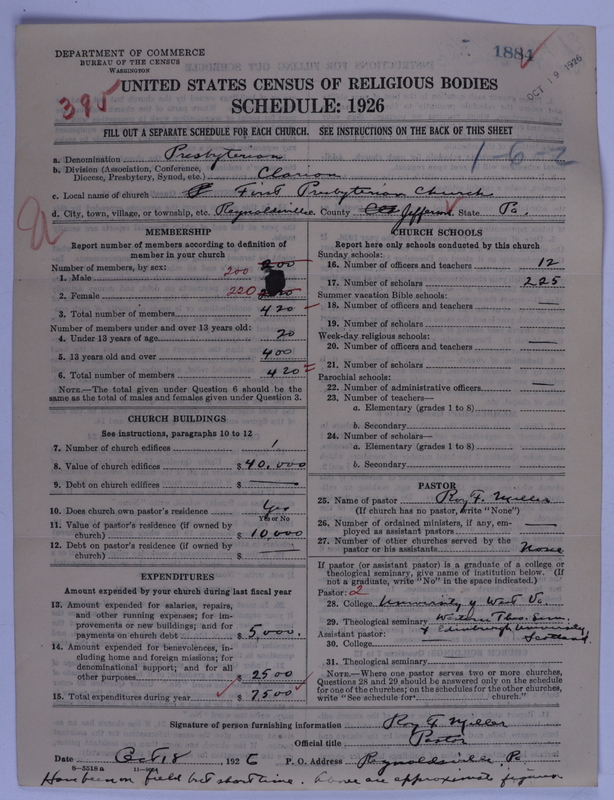 1884
OCT 19 1926
DEPARTMENT OF COMMERCE
BUREAU OF THE CENSUS
WASHINGTON
395
UNITED STATES CENSUS OF RELIGIOUS BODIES
SCHEDULE: 1926
FILL OUT A SEPARATE SCHEDULE FOR EACH CHURCH. SEE INSTRUCTIONS ON THE BACK OF THIS SHEET
1-6-2
a. Denomination Presbyterian
b. Division (Association, Conference, Diocese, Presbytery, Synod, etc.) Clarion
c. Local name of church First Presbyterian Church
d. City, town, village, or township, etc. Reynoldsville County Jefferson State Pa.
MEMBERSHIP
Report number of members according to definition of
member in your church
Number of members, by sex:
1. Male 200
2. Female 220
3. Total number of members 420
Number of members under and over 13 years old:
4. Under 13 years of age 20
5. 13 years old and over 400
6. Total number of members 420
NOTE.—The total given under Question 6 should be
same as the total of males and females given under Question 3.
CHURCH BUILDINGS
See instructions, paragraphs 10 to 12
7. Number of church edifices 1
8. Value of church edifices $ 40,000
9. Debt on church edifices $ —
10. Does church own pastor's residence? Yes
Yes or No
11. Value of pastor's residence (if owned by
church) $ 10,000
12. Debt on pastor's residence (if owned by
church) $ —
EXPENDITURES
Amount expended by your church during last fiscal year
13. Amount expended for salaries, repairs,
and other running expenses; for im-
provements or new buildings; and for
payments on church debt $ 5,000.
14. Amount expended for benevolences, in-
cluding home and foreign missions; for
denominational support; and for all
other purposes $ 2500
15. Total expenditures during year $ 7,500
CHURCH SCHOOLS
Report here only schools conducted by this church
Sunday schools:
16. Number of officers and teachers 12
17. Number of scholars 225
Summer vacation Bible schools:
18. Number of officers and teachers —
19. Number of scholars
Week-day religious schools:
20. Number of officers and teachers —
21. Number of scholars
Parochial schools:
22. Number of administrative officers —
23. Number of teachers—
a. Elementary (grades 1 to 8)
b. Secondary
24. Number of scholars—
a. Elementary (grades 1 to 8)
b. Secondary
PASTOR
25. Name of pastor Roy F. Miller
(If church has no pastor, write "None")
26. Number of ordained ministers, if any, em-
ployed as assistant pastors —
27. Number of other churches served by the
pastor or his assistants None
If pastor (or assistant pastor) is a graduate of a college or
theological seminary, give name of institution below. (If
not a graduate, write "No" in the space indicated.)
Pastor: 2
28. College University of West Va.
29. Theological seminary Western Theo. Sem.
& Edinburgh University
Scotland
Assistant pastor:
30. College
31. Theological seminary
NOTE.—Where one pastor serves two or more churches,
Questions 28 and 29 should be answered only on the schedule
for one of the churches; on the schedules for the other churches,
write "See schedule for church."
Signature of person furnishing information Roy F. Miller
Official title Pastor
Date Oct 18 1926 P. O. Address Reynoldsville, Pa.
8-5518a
Have been on field but short time. Above are approximate figures